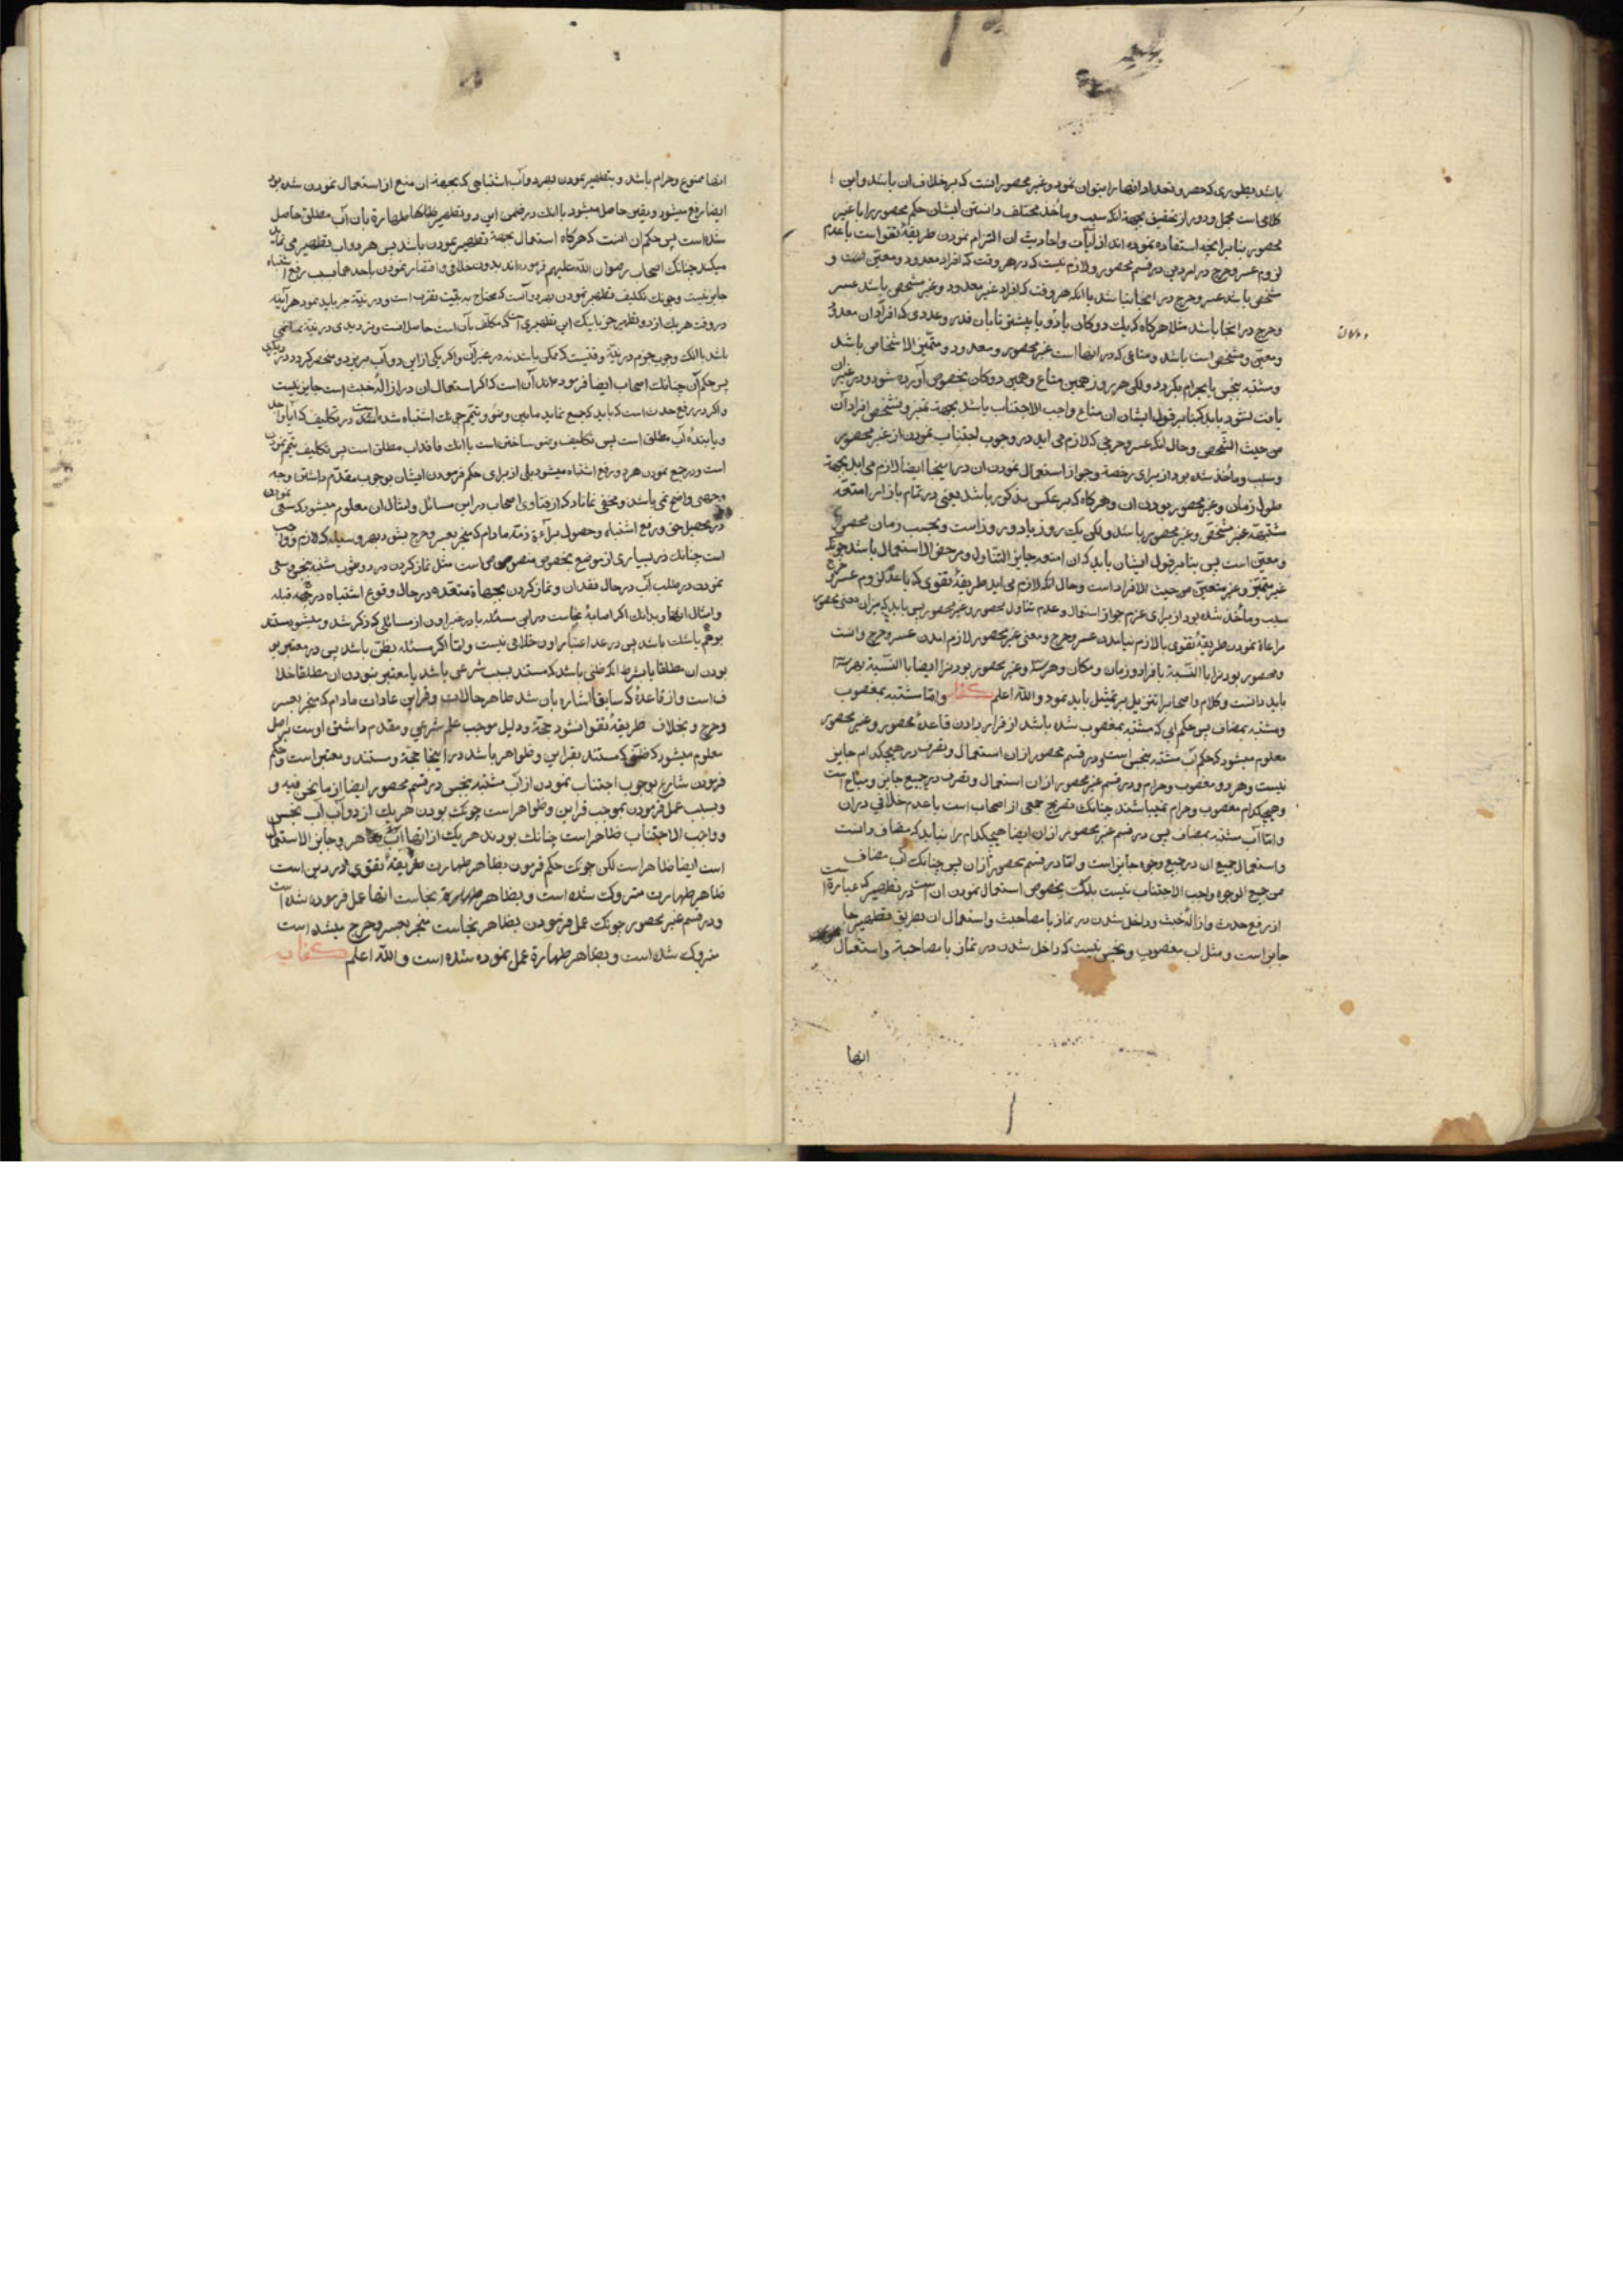 باشد بطوری که حصر و تعداد انها را بتوان نمود و غیر محصور انست که بر خلاف ان باشد و این
کلامی است مجمل و دور از تحقیق بجهة انکه سبب و مأخذ مختلف دانستن ایشان حکم محصور را با غیر
محصور بنابر انچه استفاده نموده اند از ایات و احادیث ان التزام نمودن طریقهٔ تقوا است با عدم
لزوم عسر و حرج در امر دین در قسم محصور و لازم نیست که در هر وقت که افراد معدود و معین است و
شخصی باشد عسر و حرج در انجا نباشد با انکه هر وقت که افراد غیر معدود و غیر مشخص باشد عسر
و حرج در انجا باشد مثلا هرکاه که یك دوکان یا دو یا بیشتر تا بان قدر و عددی که افراد ان معدود
و معین و مشخص است باشد و متاعی که در انها است غیر محصور و معدود و متمیّز الاشخاص باشد
و مشتبه بنجس یا بحرام بکردد ولکن هر روز همین متاع و همین دوکان بخصوص آورده شود و در غیر ان
یافت نشود باید که بنابر قول ایشان ان متاع واجب الاجتناب باشد بجهة تمیز و تشخص افراد ان
من حیث التشخص و حال انکه عسر و حرجی که لازم می اید در وجوب اجتناب نمودن از غیر محصور
و سبب و مأخذ شده بود از برای رخصة و جواز استعمال نمودن ان در اینجا ایضا لازم می اید بجهة
طول زمان و غیر محصور بودن ان و هرکاه که بر عکس مذکور باشد یعنی در تمام بازار امتعه
مشتبهه غیر مشخّص و غیر محصور باشد ولکن یك روز یا دو روز است و بحسب زمان محصور
و معین است پس بنابر قول ایشان باید که ان امتعه جایز التناول و مرخص الاستعمال باشد چونکه
غیر متمیّز و غیر متعیّن من حیث الافراد است و حال انکه لازم می اید طریقهٔ تقوی که با عدم لزوم عسر و حرج
سبب و مأخذ شده بود از برای عزم جواز استعمال و عدم تناول محصور و غیر محصور پس باید که میزان معنی محصور
مراعاة نمودن طریقهٔ تقوی با لازم نیامدن عسر و حرج و معنی غیر محصور لازم امدن عسر و حرج دانست
و محصور بودن را با النّسبة بافراد و زمان و مکان و غیر محصور بودن را ایضا با النّسبة
باید دانست و کلام و اصحاب را تنزیل بر تمثیل باید نمود و الله اعلم کفار و اما مشتبه بمغصوب
و مشتبه بمضاف پس حکم ابی که مشتبه بمغصوب شده باشد از قرار دادن قاعدهٔ محصور و غیر محصور
معلوم میشود که حکم آب مشتبه بنجس است و در قسم محصور از ان استعمال و تصرف در هیچکدام جایز
نیست و هر دو مغصوب و حرام و در قسم غیر محصور از ان استعمال و تصرف در جمیع جایز و مباح است
و هیچکدام مغصوب و حرام نمیباشند چنانك تصریح جمعی از اصحاب است با عدم خلافی در ان
و اما آب مشتبه بمضاف پس در قسم غیر محصور از ان ایضا هیچکدام را نباید که مضاف دانست
و استعمال جمیع ان در جمیع وجوه جایز است و اما در قسم محصور از ان پس چنانك آب مضاف
من جمیع الوجوه واجب الاجتناب نیست بلکه بخصوص استعمال نمودن ان است در تطهیر که عبارة است
از رفع حدث و ازالهٔ خبث و داخل شدن در نماز با مصاحبت و استعمال ان بطریق تطهیر جا
جایز است و مثل اب مغصوب و نجس نیست که داخل شدن در نماز با مصاحبة و استعمال
انها
انها ممنوع و حرام باشد و بتطهیر نمودن بهر دو آب اشتباهی که بجهة ان منع از استعمال نمودن شده بود
ایضا رفع میشود و یقین حاصل میشود با انك در ضمن این دو تطهیر طهارة بان آب مطلق حاصل
شده است پس حکم ان انست که هرکاه استعمال بجهة تطهیر نمودن باشد پس هر دو اب تطهیر می نماید
میکند چنانك اصحاب رضوان الله علیهم فرموده اند بدون خلافی و اقتصار نمودن باحدهما بسبب رفع اشتباه
جایز نیست و چونك تکلیف تطهیر نمودن بهر دو آست که محتاج به نیت تقرب است و در نیّة جزم باید نمود هر آینه
در وقت هر یك از دو تطهیر جزم بانك این تطهیری است که مکلف بآن است حاصل است و تردیدی در نیّة نمیباشد
باشد با انك وجوب جزم در نیّة وقتیست که ممکن باشد نه در غیر آن و اکر یکی از این دو آب بریزد و منحصر کردد در دیکری
پس حکم آن چنانك اصحاب ایضا فرموده اند آن است که اکر استعمال ان در ازالهٔ خبث است جایز نیست
و اکر در رفع حدث است که باید که جمع نماید مابین وضو و تیمم چونك اشتباه شده است در تکلیف که آیا واجد
و یابندهٔ آب مطلق است پس تکلیف وضو ساختن است یا انك فاقد اب مطلق است پس تکلیف تیمم نمودن
است و در جمع نمودن هر دو رفع اشتباه میشود بلی از برای حکم فرمودن ایشان بوجوب مقدّم داشتن وجه
وجهی واضح نمی باشد و مخفی نماناد که از فتاوی اصحاب در این مسائل و امثال ان معلوم میشود که سعی نمودن
در تحصیل حق و رفع اشتباه و حصول براءة ذمّة مادام که منجر بعسر و حرج نشود بهر وسیله که لازم و واجب
است چنانك در بسیاری از موضع بخصوص منصوص است مثل نماز کردن در دو ثوب مشتبه بنجس و سعی
نمودن در طلب آب در حال فقدان و نماز کردن بجهاة متعدّده در حال وقوع اشتباه در جهة قبله
و امثال انها و بدانك اکر اصابهٔ نجاست در این مسئله یا در غیر اون از مسائلی که ذکر شد و میشود مستند
بوهم یا شك باشد پس در عدم اعتبار اون خلافی نیست و اما اکر مسئله بظن باشد پس در معتبر بو
بودن ان مطلقا یا بشرط انکه ظنی باشد که مستند بسبب شرعی باشد یا معتبر نبودن ان مطلقا خلا
ف است و از قاعدهٔ که سابقا اشاره بان شد ظاهر حالات و قراین عادات مادام که منجر بعسر
و حرج و بخلاف طریقهٔ تقوا نشود حجّة و دلیل موجب علم شرعی و مقدم داشتن اوست بر اصل
معلوم میشود که ظنّی که مستند بقراین و ظواهر باشد در اینجا حجّة و مستند و معتبر است و حکم
فرمودن شارع بوجوب اجتناب نمودن از آب مشتبه بنجس در قسم محصور ایضا از ما نحن فیه و
و بسبب عمل فرمودن بموجب قراین و ظواهر است چونك بودن هر یك از دو آب آب نجس
و واجب الاجتناب ظاهر است چنانك بودن هر یك از انها آب طاهر و جایز الاستعمال
است ایضا ظاهر است لکن چونك حکم فرمودن بظاهر طهارت طریقهٔ تقوی در دین است
ظاهر طهارت متروك شده است و بظاهر نجاست انها عمل فرموده شده است
و در قسم غیر محصور چونك عمل فرمودن بظاهر نجاست منجر بعسر و حرج میشده است
متروك شده است و بظاهر طهارة عمل نموده شده است و الله اعلم کفار